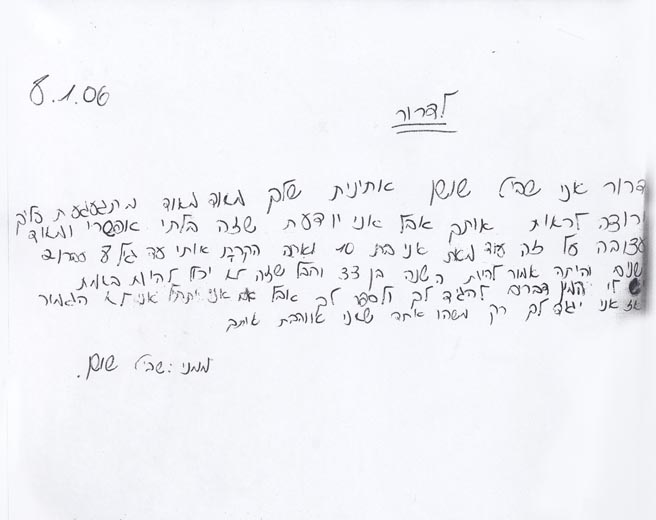 8.1.06
לדרור
דרור אני שביל שושן אחינית שלך מאוד מאוד מתגעגעת אליך
ורוצה לראות אותך אבל אני יודעת שזה בלתי אפשרי ומאוד
עצובה על זה אני בת 10 אתה הכרת אותי עד גיל
שנים והיתה אמור להיות השנה בן 33 וחבל שזה לא יכל להיות באמת
יש לי המון דברים להגיד לך ולספר לך אבל אם אני יתחיל אני לא הגמור
אז אני יגיד לך רק משהו אחד שאני אוהבת אותך
ממני: שביל שושן.